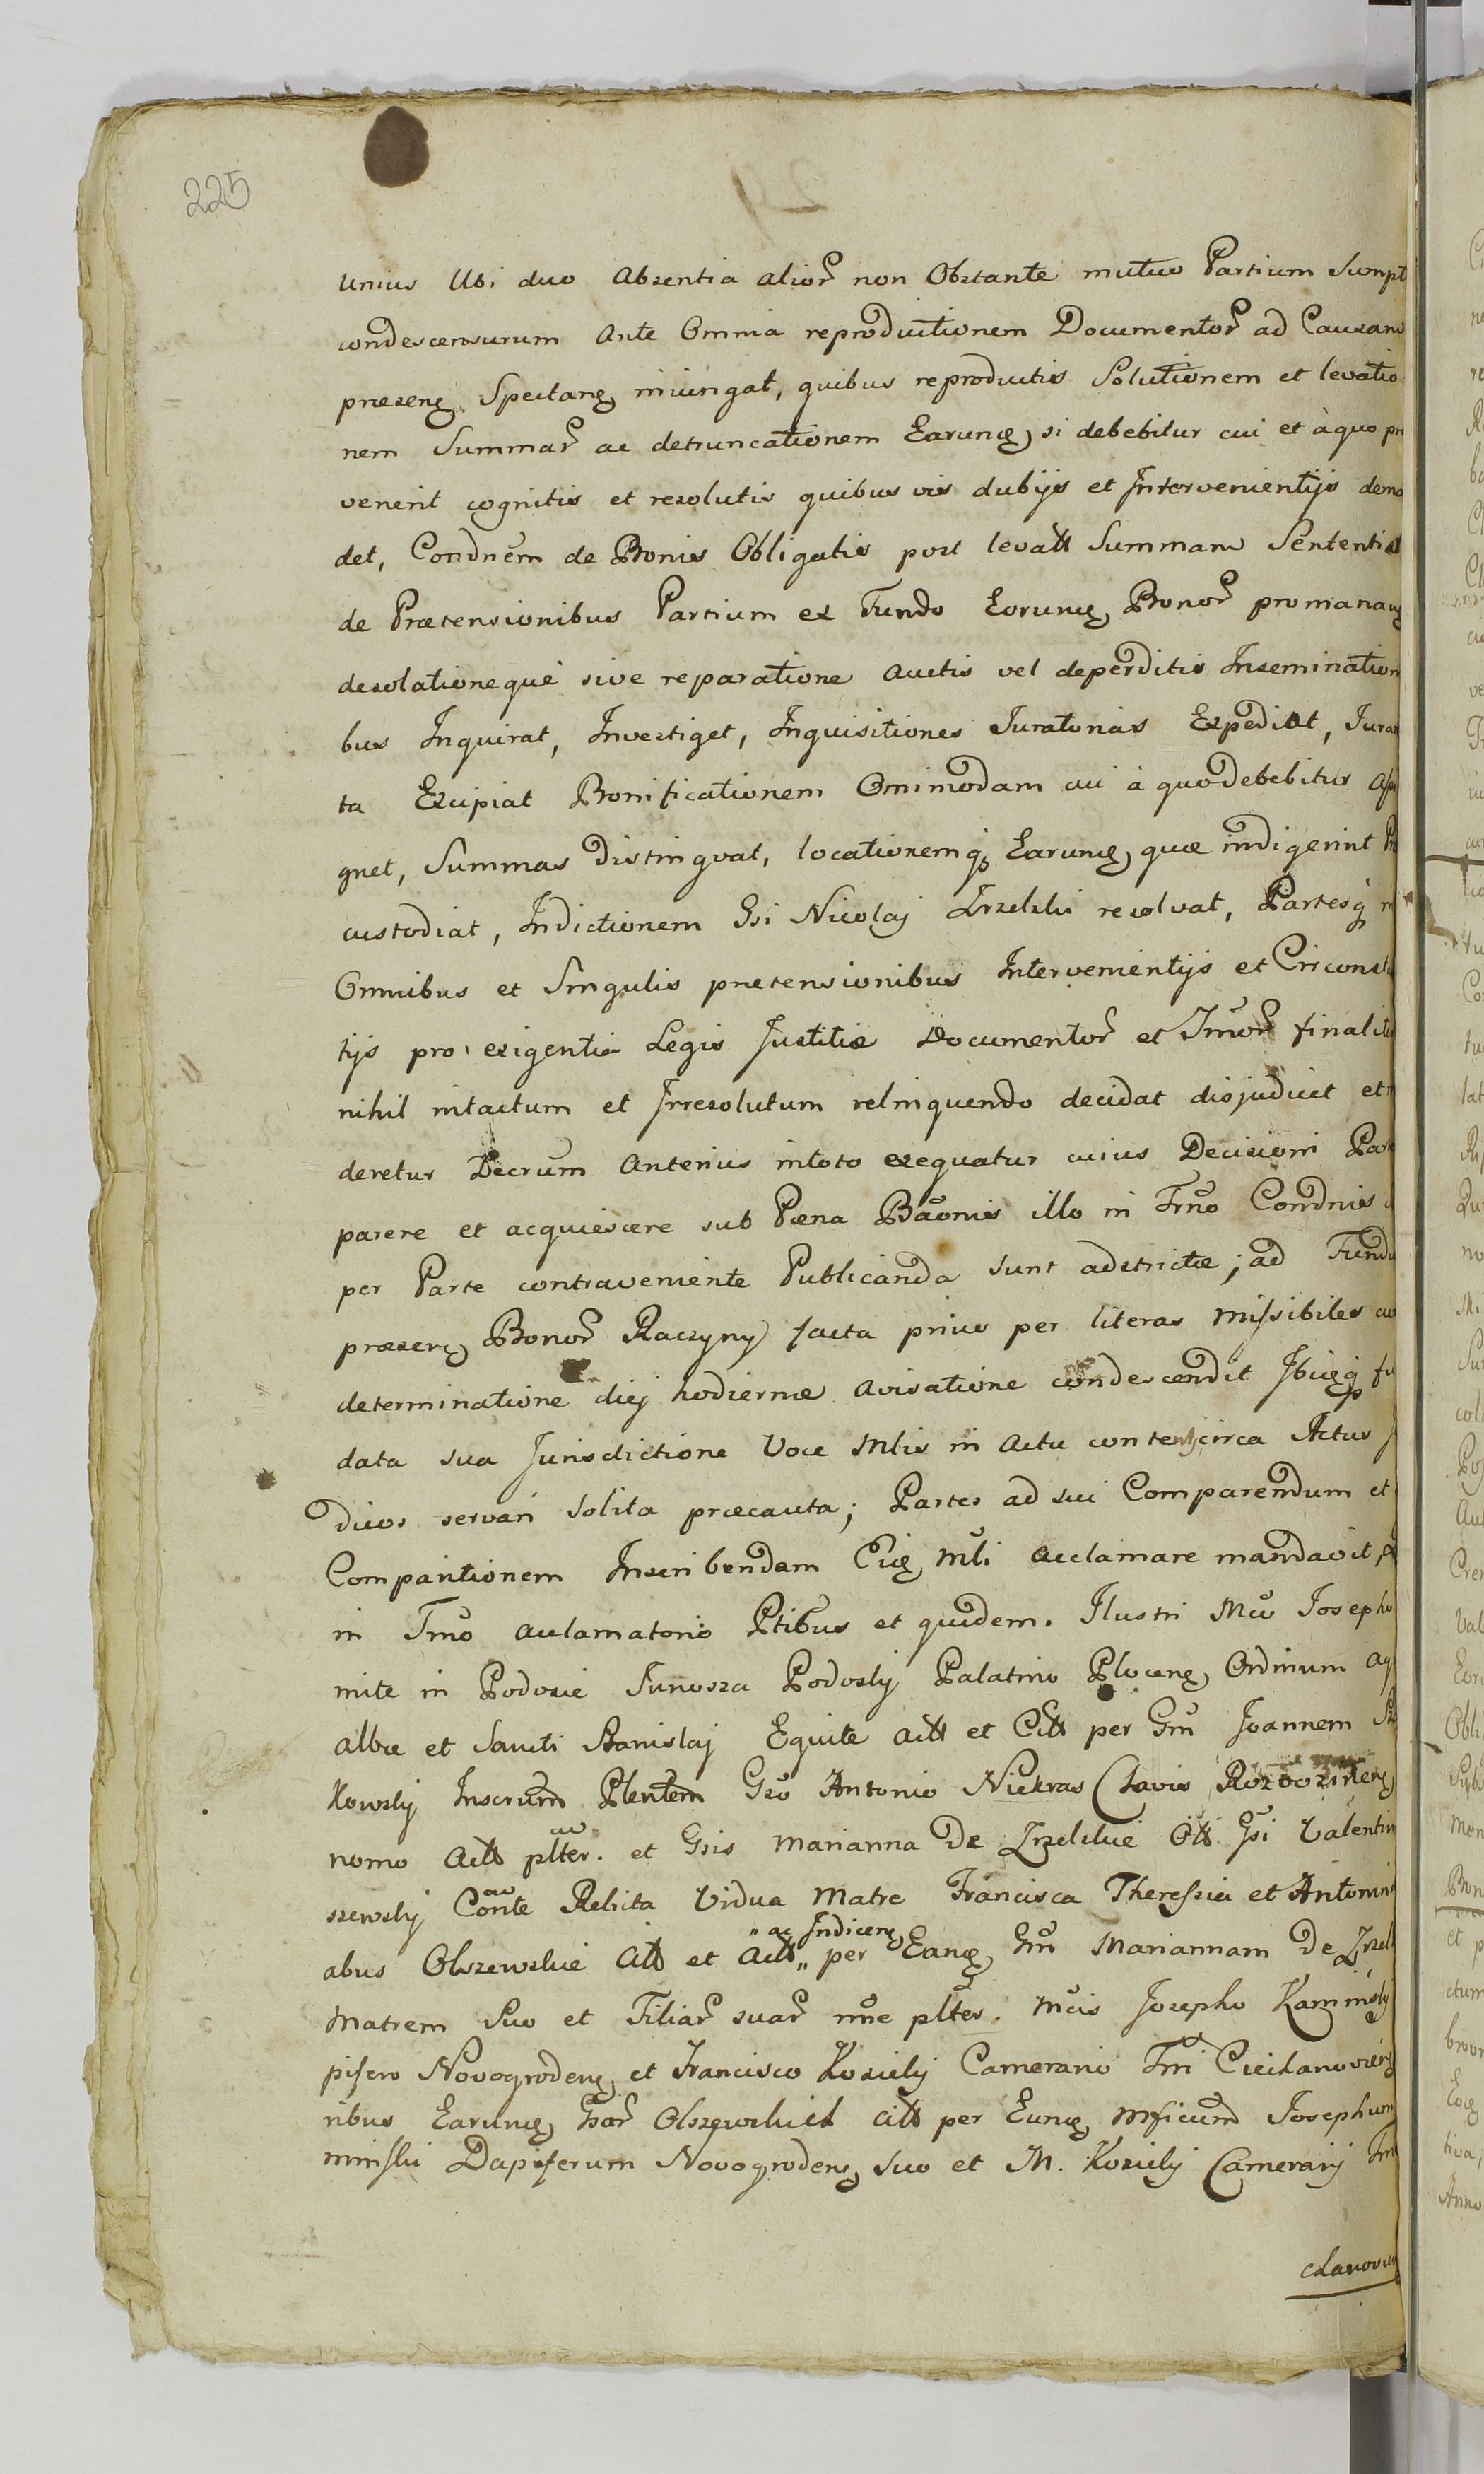 225
unius Ubi duo absentia alior non Obstante mutuo Partium Sumpt
condescensurum Ante Omnia reproductionem Documentor ad Causam
præsenę Spectanę iniungat, quibus reproductis Solutionem et levatio
nem Summar ac detruncationem Earunę, si debebitur cui et àquo pr
venerit cognitis et resolutis quibus vis dubijs et Intervenientijs deno
det, Condnem de Bonis Obligatis post levatt Summam Sententi
de Prætensionibus Partium ex Fundo Eorunę, Bonor promananę
desolationequè sive reparatione auctis vel deperditis Insemination
bus Inquirat, Investiget, Inquisitiones Juratorias Expediat, Jura
ta Excipiat Bonificationem Omimodam cui à quo debebitur Assi
gnet, Summas Distingvat, locationemq Earunę, quæ indigerint
custodiat, Indictionem Gsi Nicolaj Zrzelski resolvat, Partesq
Omnibus et Singulis prætensionibus Intervenientijs et Circonsta
tijs pro exigentia Legis Justitiæ Documentor et Jmor finalite
nihil intactum et Irresolutum relinquendo decidat disjudicet et
deretur Decrum Anterius intoto exequatur cuius Decisioni Part
parere et acquiescere sub Pæna Baonis illo in Trno Condnis
per Parte contraveniente Publicanda sunt adstrictæ; ad Fundu
præsenę, Bonor Raczyny facta prius per literas missibiles cu
determinatione diej hodiernæ avisatione condescendit Ibięq fu
data sua Jurisdictione Voce Mlis in Actu content circa Actus J
dicos servari Solita præcauta; Partes ad sui Comparendum et
Comparitionem Inscribendam Eię, Mli acclamare mandavit,
in Trno acclamatorio Ptibus et quidem. Ilustri Mco Josepho
mite in Podosie Junosza Podosky Palatino Plocenę, Ordinum Aqu
albæ et Sancti Stanislaj Equite Actt et Citt per Gm Joannem
Kowsky Inscrum Plentem Gso Antonio Niekras Clavis Rozvozinenę,
nomo Actt plter. et Gsis Marianna De Zrzelskie Ott Gsi Valentin
szewsky Conte Relicta Vidua Matre Francisca Theressia et Antonin
ac Indicenę,
abus Olszewskie Citt et Actt per Eanę, Gm Mariannam De Zrzel
Matrem Suo et Filiar suar nne plter. Mcis Josepho Kaminsky
pifero Novogrodenę, et Francisco Kosicky Camerario Trri Ciechanovienę
ribus Earunę, Gsar Olszewskich Citt per Eunę, Mficum Josephum
minski Dapiferum Novogrodenę, suo et M. Kosicky Camerarij Trri
chanovien